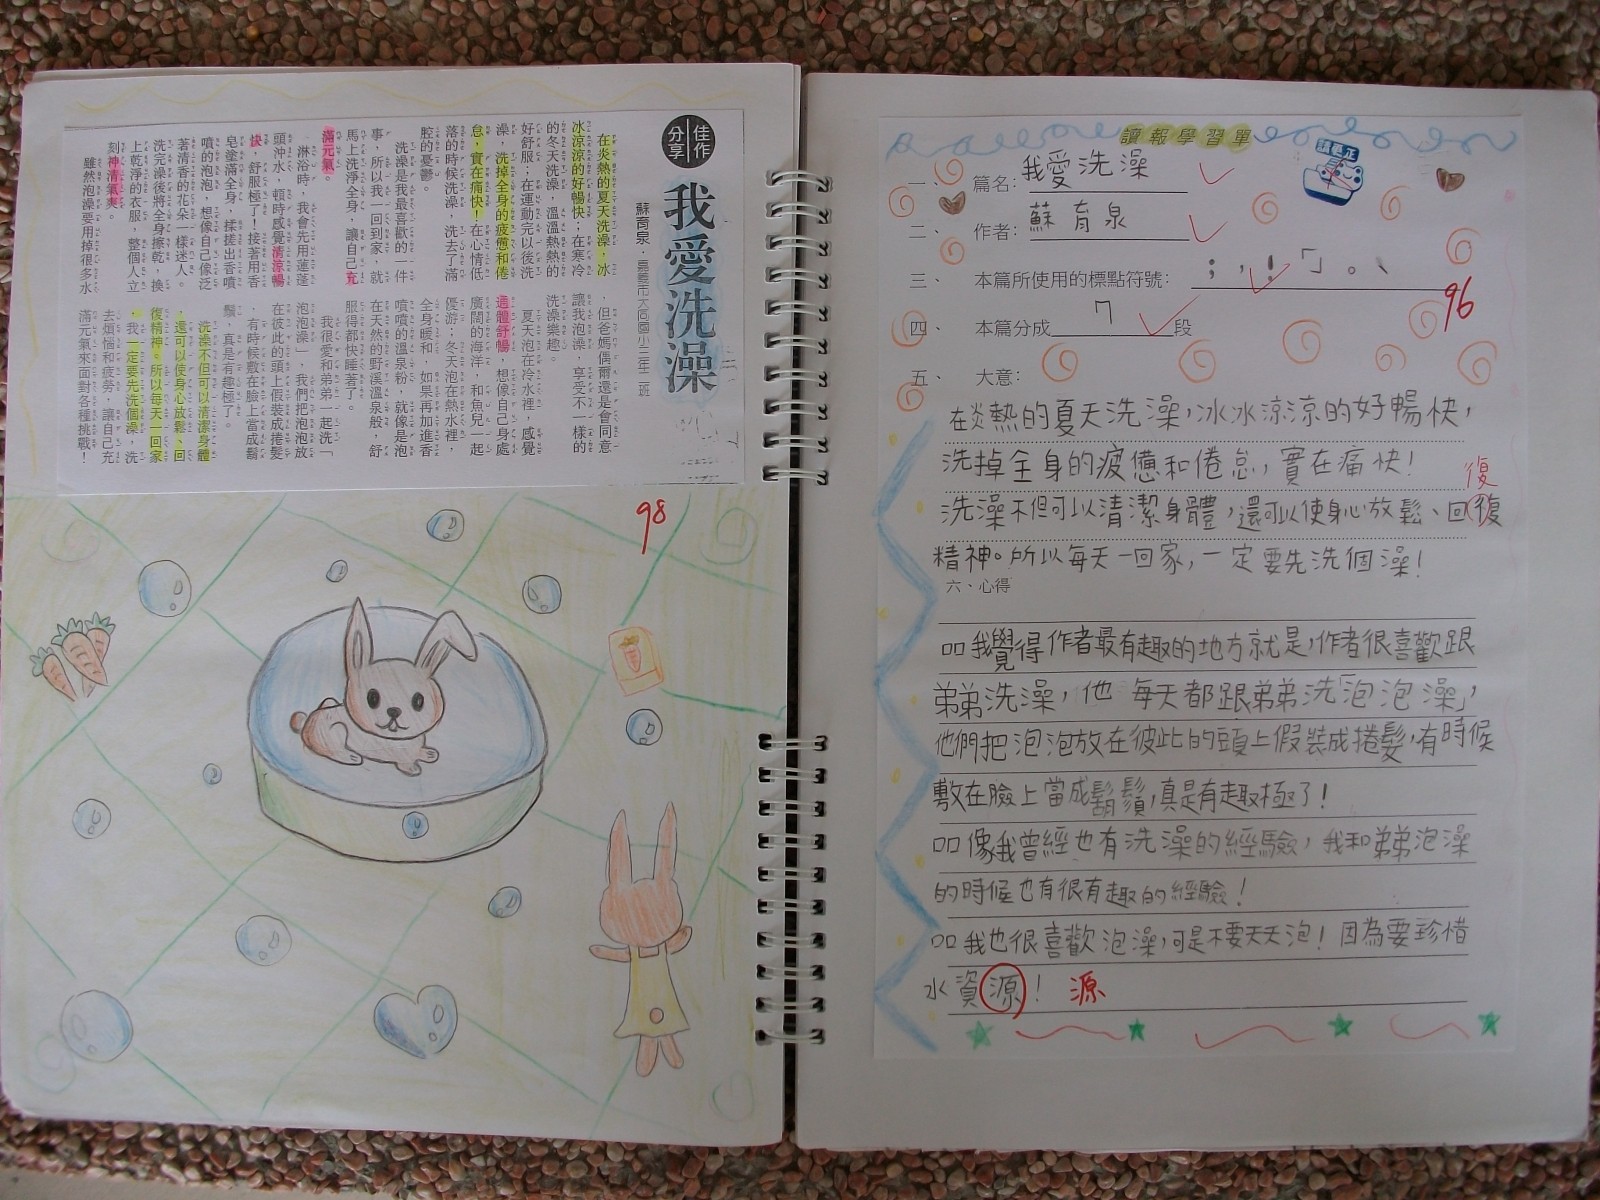 佳作
分享
我愛洗澡
蘇育泉．嘉義市大同國小三年二班
在炎熱的夏天洗澡，冰
冰涼涼的好暢快；在寒冷
的冬天洗澡，溫溫熱熱的
好舒服；在運動完以後洗
澡，洗掉全身的疲憊和倦
怠，實在痛快！在心情低
落的時候洗澡，洗去了滿
腔的憂鬱。
洗澡是我最喜歡的一件
事，所以我一回到家，就
馬上洗淨全身，讓自己充
滿元氣。
淋浴時，我會先用蓮蓬
頭沖水，頓時感覺清涼暢
快，舒服極了！接著用香
皂塗滿全身，揉搓出香噴
噴的泡泡，想像自己像泛
著清香的花朵一樣迷人。
洗完澡後將全身擦乾，換
上乾淨的衣服，整個人立
刻神清氣爽。
雖然泡澡要用掉很多水
，但爸媽偶爾還是會同意
讓我泡澡，享受不一樣的
洗澡樂趣。
夏天泡在冷水裡，感覺
通體舒暢，想像自己身處
廣闊的海洋，和魚兒一起
優游；冬天泡在熱水裡，
全身暖和，如果再加進香
噴噴的溫泉粉，就像是泡
在天然的野溪溫泉般，舒
服得都快睡著了。
我很愛和弟弟一起洗「
泡泡澡」，我們把泡泡放
在彼此的頭上假裝成捲髮
，有時候敷在臉上當成鬍
鬚，真是有趣極了。
洗澡不但可以清潔身體
，還可以使身心放鬆、回
復精神。所以每天一回家
，我一定要先洗個澡，洗
去煩惱和疲勞，讓自己充
滿元氣來面對各種挑戰！
98
讀報學習單
請更正
一、 篇名：我愛洗澡
二、 作者：蘇育泉
三、 本篇所使用的標點符號：；，！「」。、
96
四、 本篇分成7段
五、 大意：
在炎熱的夏天洗澡，冰冰涼涼的好暢快，
洗掉全身的疲憊和倦怠，實在痛快！
復
洗澡不但可以清潔身體，還可以使身心放鬆、回復
精神。所以每天一回家，一定要先洗個澡！
六、心得
口口我覺得作者最有趣的地方就是，作者很喜歡跟
弟弟洗澡，他每天都跟弟弟洗「泡泡澡」，
他們把泡泡放在彼此的頭上假裝成捲髮，有時候
敷在臉上當成鬍鬚，真是有趣極了！
口口像我曾經也有洗澡的經驗，我和弟弟泡澡
的時候也有很有趣的經驗！
口口我也很喜歡泡澡，可是不要天天泡！因為要珍惜
水資源！ 源